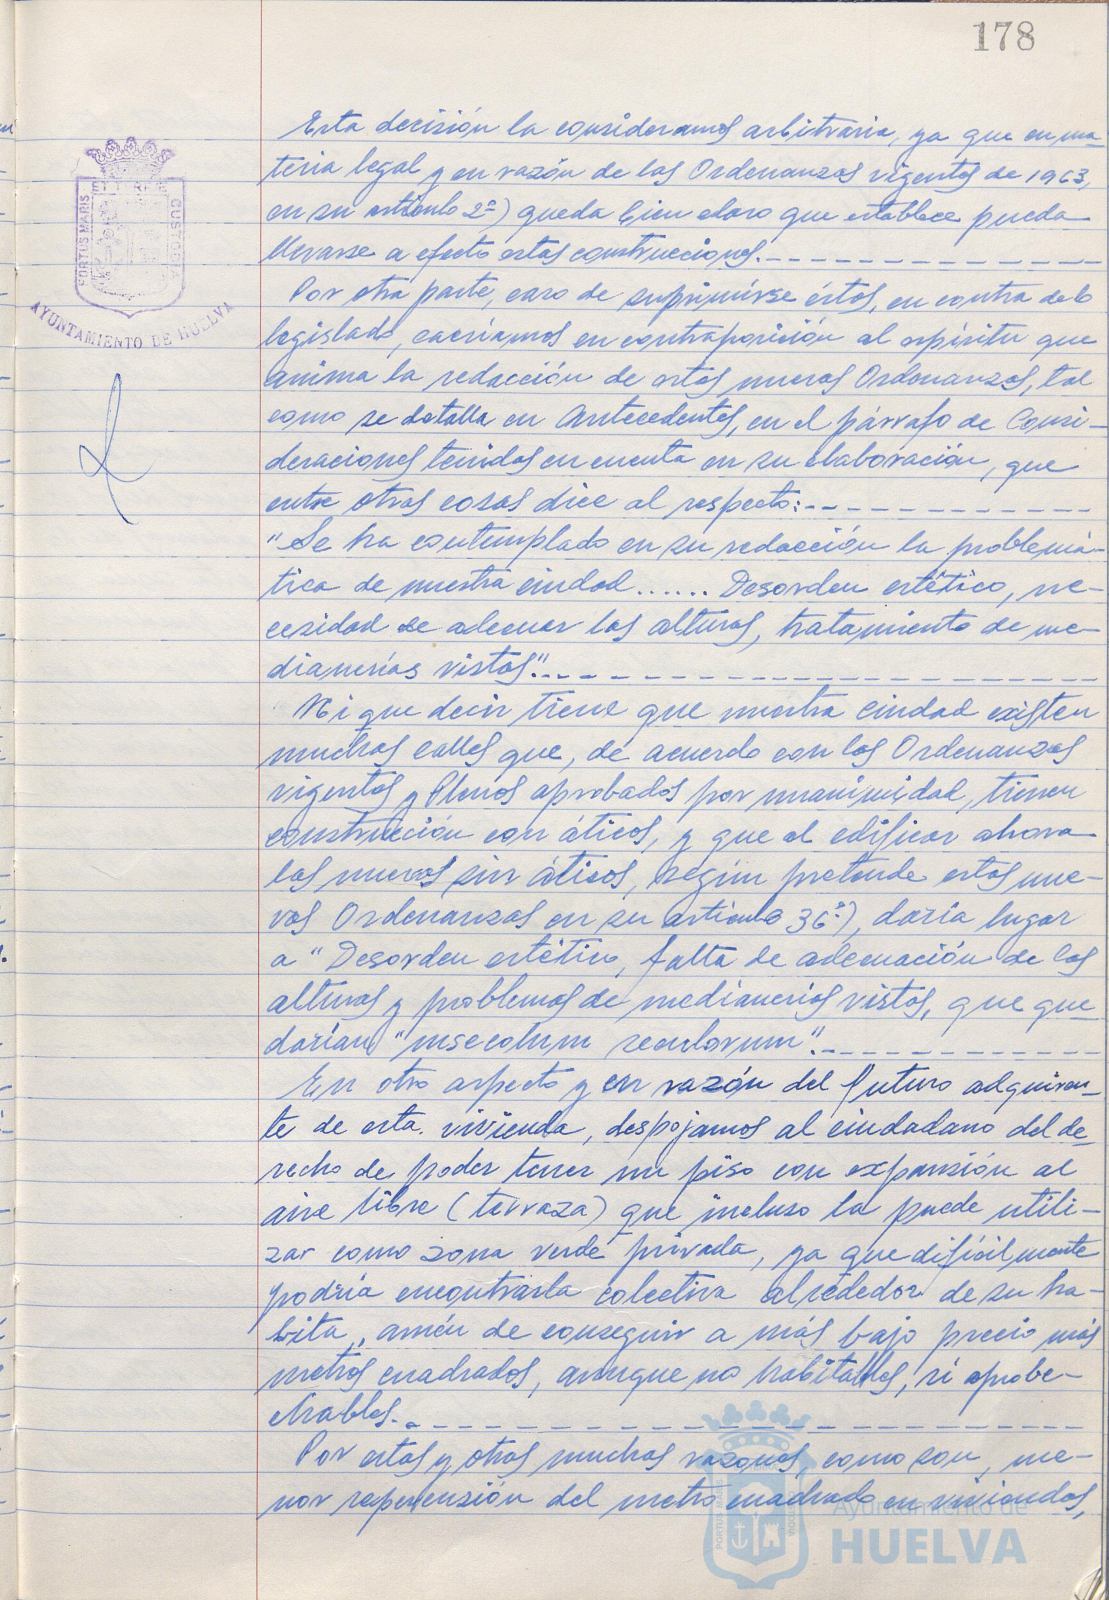 178
Esta decisión la consideramos arbitraria, ya que en ma-
teria legal y en razón de las Ordenanzas vigentes de 1963,
en su artículo 2º) queda bien claro que establece pueda
llevarse a efecto estas construcciones.
Por otra parte, caso de suprimirse éstos, en contra de lo
legislado, caeríamos en contraposición al espíritu que
anima la redacción de estas nuevas Ordenanzas, tal
como se detalla en Antecedentes, en el párrafo de Consi-
deraciones tenidas en cuenta en su elaboración, que
entre otras cosas dice al respecto:
"Se ha contemplado en su redacción la problemá-
tica de nuestra ciudad...... Desorden estético, ne-
cesidad de adecuar las alturas, tratamiento de me-
dianerías vistas".
Ni que decir tiene que nuestra ciudad existen
muchas calles que, de acuerdo con las Ordenanzas
vigentes y Plenos aprobados por unanimidad, tienen
construcción con áticos, y que al edificar ahora
las nuevas sin áticos, según pretende estas nue-
vas Ordenanzas en su artículo 36º), daría lugar
a "Desorden estético, falta de adecuación de las
alturas y problemas de medianerías vistas, que que
darían "insecolum seculorum".
En otro aspecto y en razón del futuro adquiren-
te de esta vivienda, despojamos al ciudadano del de
recho de poder tener un piso con expansión al
aire libre (terraza) que incluso la puede utili-
zar como zona verde privada, ya que difícilmente
podría encontrarla colectiva alrededor de su ha-
bita, amén de conseguir a más bajo precio más
metros cuadrados, aunque no habitables, si aprobe-
chables.
Por estas y otras muchas razones, como son, me-
nor repercusión del metro cuadrado en viviendas,
PORTUS MARIS ET TERRAE CUSTODIA
AYUNTAMIENTO DE HUELVA
Ayuntamiento de
HUELVA